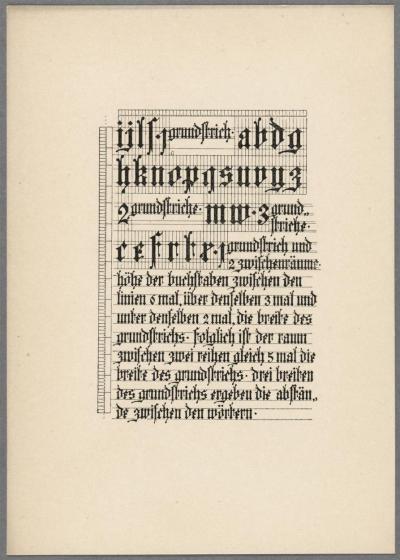 ijlſ·1grundſtrich· abdg
hknopqsuvyz
2grundſtriche· mw·3grund„
ſtriche·
cefrtx·1grundſtrich und
2 zwiſchenräume·
höhe der buchſtaben zwiſchen den
linien 6 mal, über denſelben 3 mal und
unter denſelben 2 mal, die breite des
grundſtrichs· folglich iſt der raum
zwiſchen zwei reihen gleich 5 mal die
breite des grundſtrichs· drei breiten
des grundſtrichs ergeben die abſtän„
de zwiſchen den wörtern·